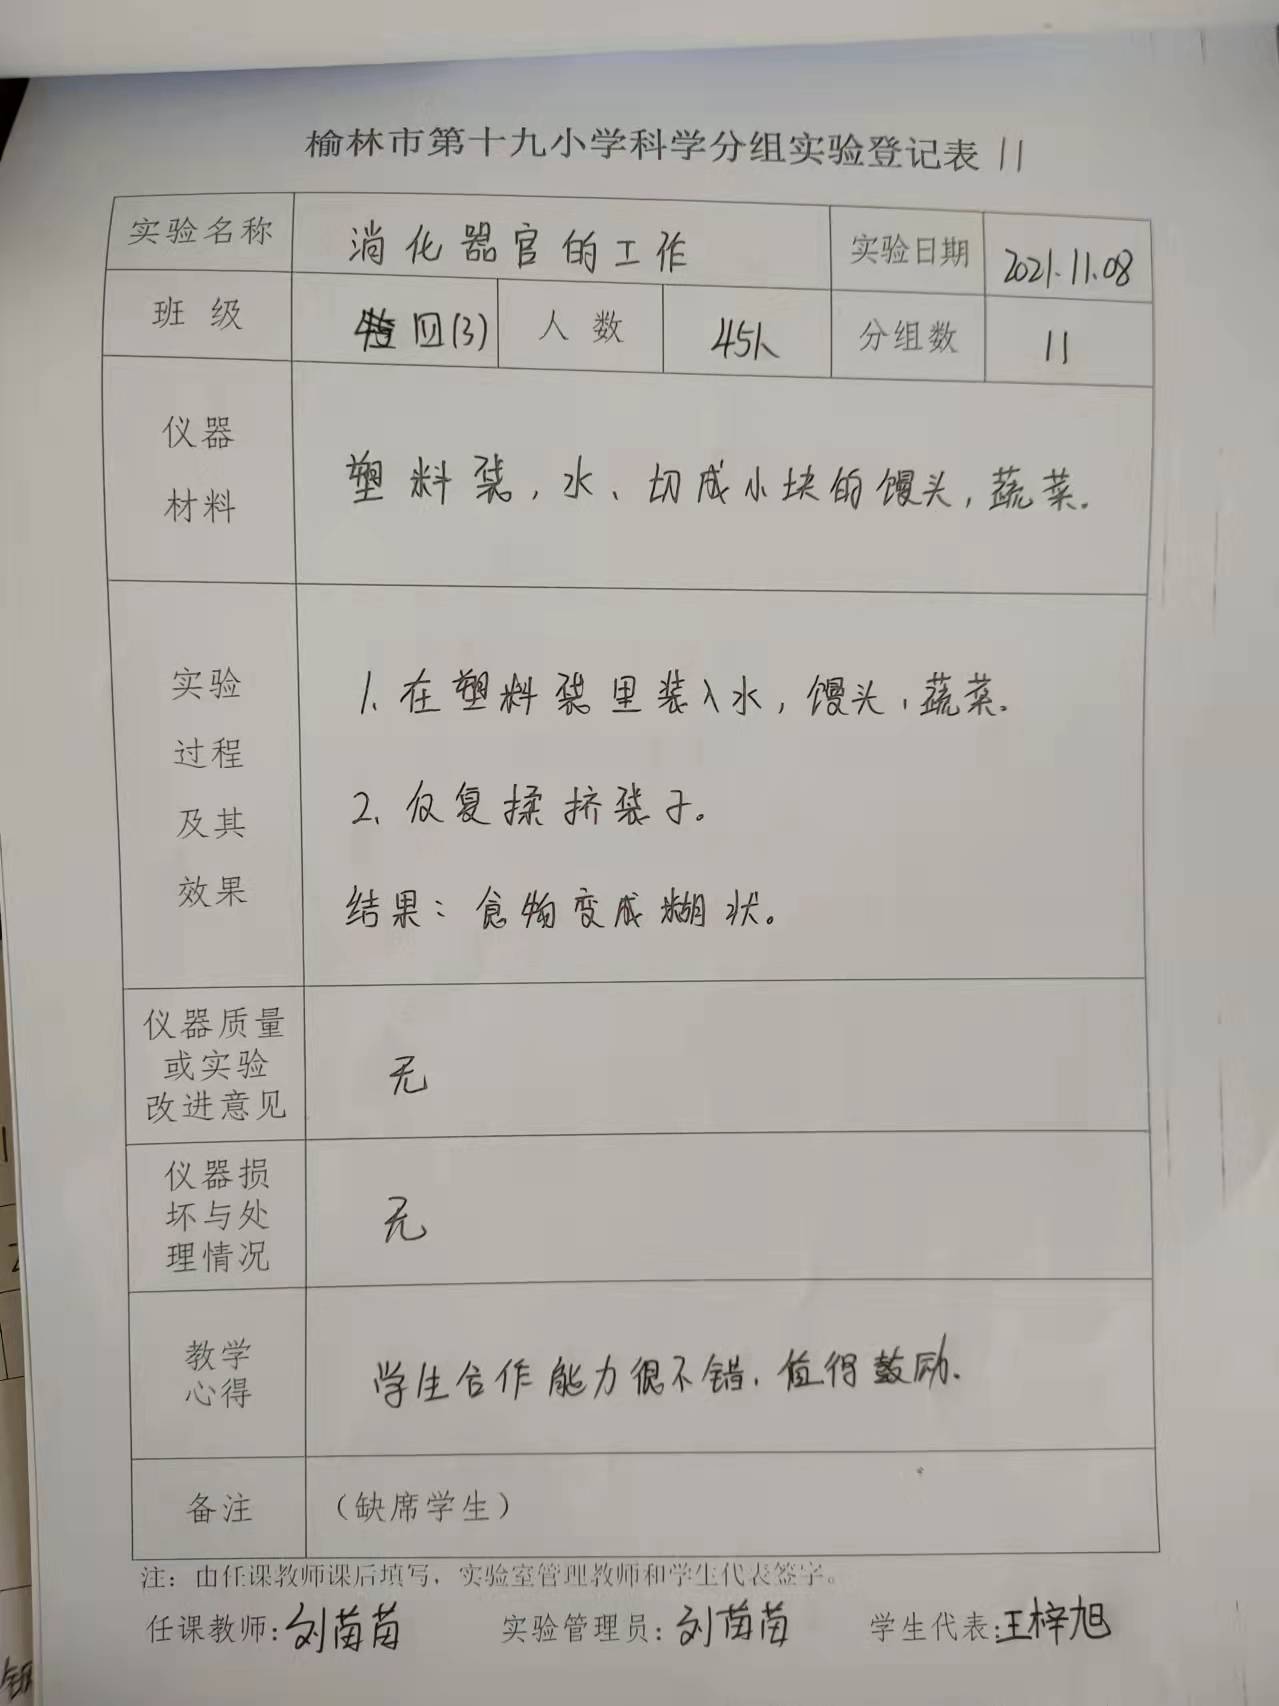 榆林市第十九小学科学分组实验登记表 11
实验名称 消化器官的工作 实验日期 2021.11.08
班 级 四(3) 人 数 45人 分组数 11
仪器
材料
塑料袋，水、切成小块的馒头，蔬菜.
实验
过程
及其
效果
1、在塑料袋里装入水，馒头，蔬菜.
2、反复揉挤袋子。
结果：食物变成糊状。
仪器质量
或实验
改进意见
无
仪器损
坏与处
理情况
无
教学
心得
学生合作能力很不错，值得鼓励.
备注 （缺席学生）
注：由任课教师课后填写，实验室管理教师和学生代表签字。
任课教师:刘苗苗 实验管理员:刘苗苗 学生代表:王梓旭